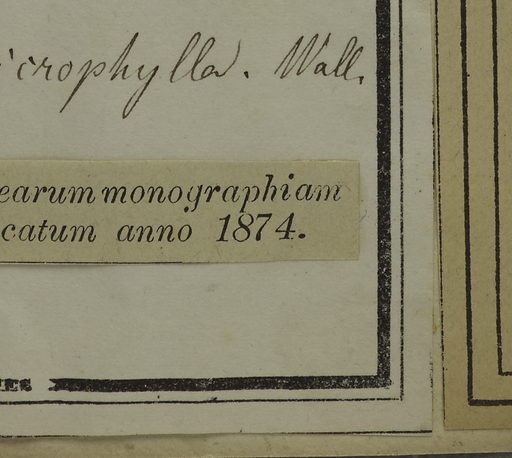 icrophylla. Wall.
earum monographiam
catum anno 1874.